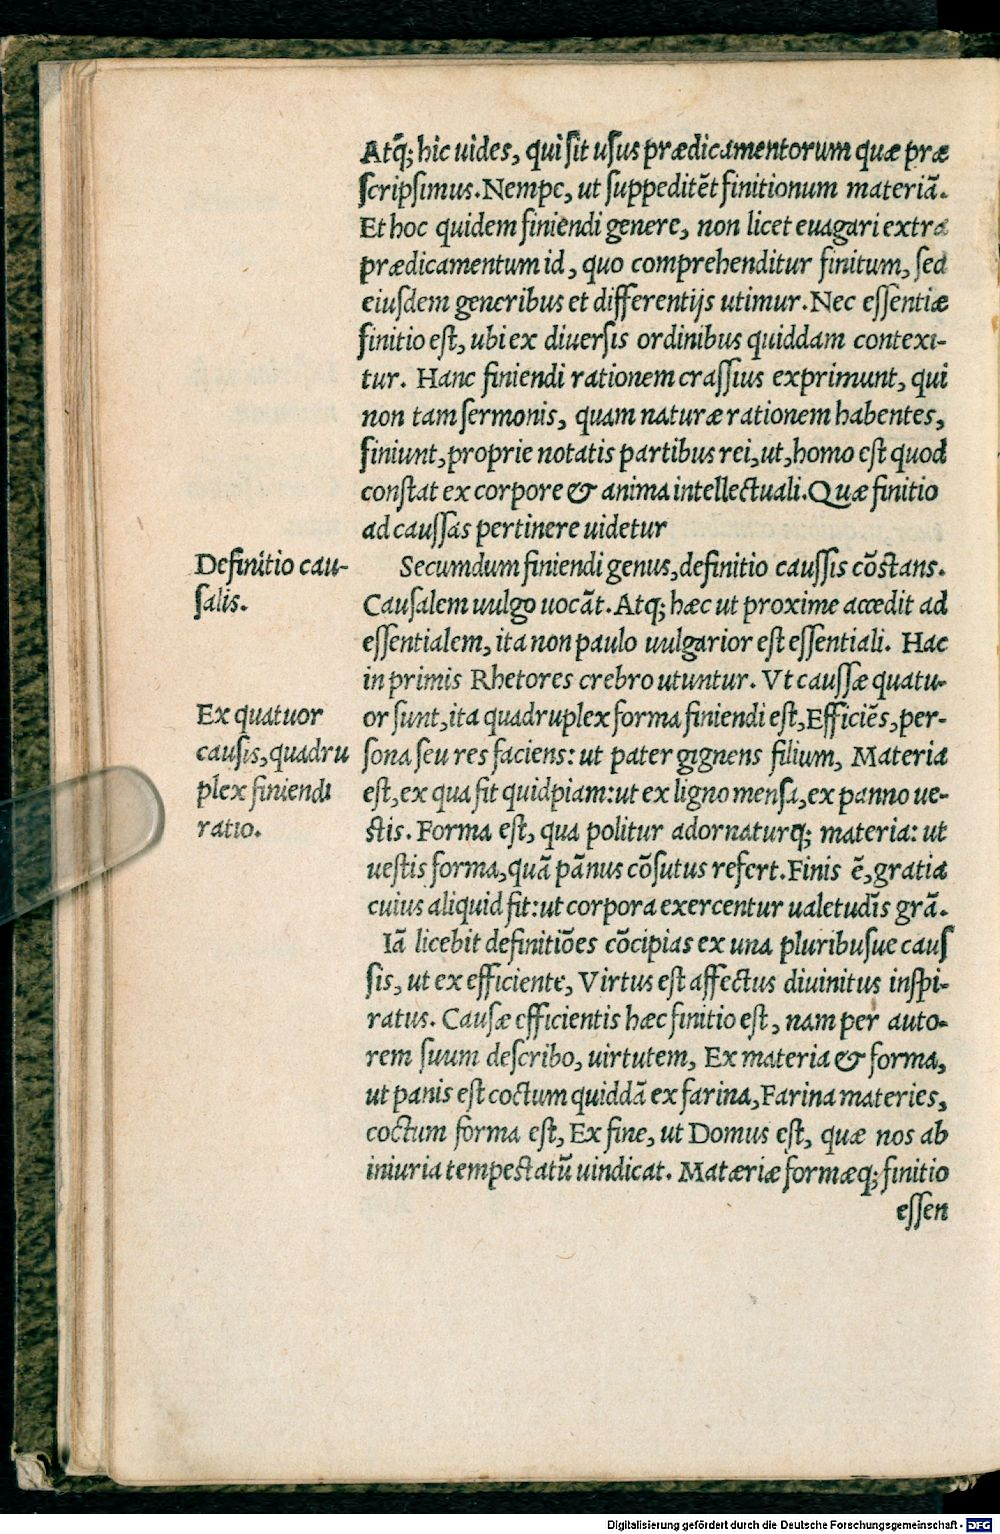 Atq̃; hic uides, qui sit usus prædicamentorum quæ præ
scripsimus. Nempe, ut suppeditēt finitionum materiā.
Et hoc quidem finiendi genere, non licet euagari extra
prædicamentum id, quo comprehenditur finitum, sed
eiusdem generibus et differentijs utimur. Nec essentiæ
finitio est, ubi ex diuersis ordinibus quiddam contexi-
tur. Hanc finiendi rationem crassius exprimunt, qui
non tam sermonis, quam naturæ rationem habentes,
finiunt, proprie notatis partibus rei, ut, homo est quod
constat ex corpore & anima intellectuali. Quæ finitio
ad caussas pertinere uidetur
Definitio cau-
salis.
Secumdum finiendi genus, definitio caussis cōstans.
Causalem uulgo uocāt. Atq; hæc ut proxime accedit ad
essentialem, ita non paulo uulgarior est essentiali. Hac
in primis Rhetores crebro utuntur. Vt caussæ quatu-
Ex quatuor
causis, quadru
plex finiendi
ratio.
or sunt, ita quadruplex forma finiendi est, Efficiēs, per-
sona seu res faciens: ut pater gignens filium, Materia
est, ex qua fit quidpiam: ut ex ligno mensa, ex panno ue-
stis. Forma est, qua politur adornaturq; materia: ut
uestis forma, quā pānus cōsutus refert. Finis ē, gratia
cuius aliquid fit: ut corpora exercentur ualetudīs grā.
Iā licebit definitiōes cōcipias ex una pluribusue caus
sis, ut ex efficiente, Virtus est affectus diuinitus inspi-
ratus. Causæ efficientis hæc finitio est, nam per auto-
rem suum describo, uirtutem, Ex materia & forma,
ut panis est coctum quiddā ex farina, Farina materies,
coctum forma est, Ex fine, ut Domus est, quæ nos ab
iniuria tempestatū uindicat. Matæriæ formæq; finitio
essen
Digitalisierung gefördert durch die Deutsche Forschungsgemeinschaft - DFG